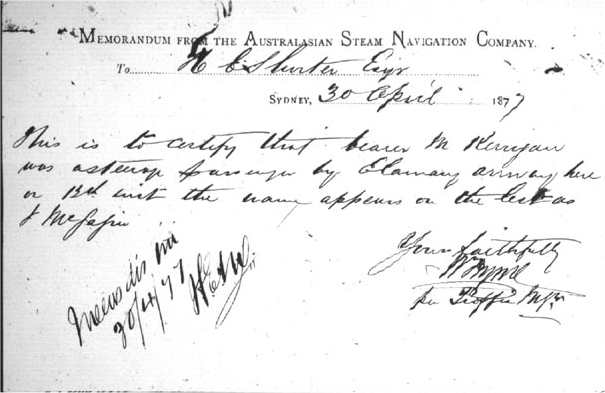 MEMORANDUM FROM THE AUSTRALASIAN STEAM NAVIGATION COMPANY.
To H C Esqr
SYDNEY, 30 April 1877
This is to certify that bearer M Kerrigan
was a steerage passenger by Elamang arriving here
on 13th inst the name appears on the list as
J
Yours faithfully
pr Traffic Mgr
30/4/77